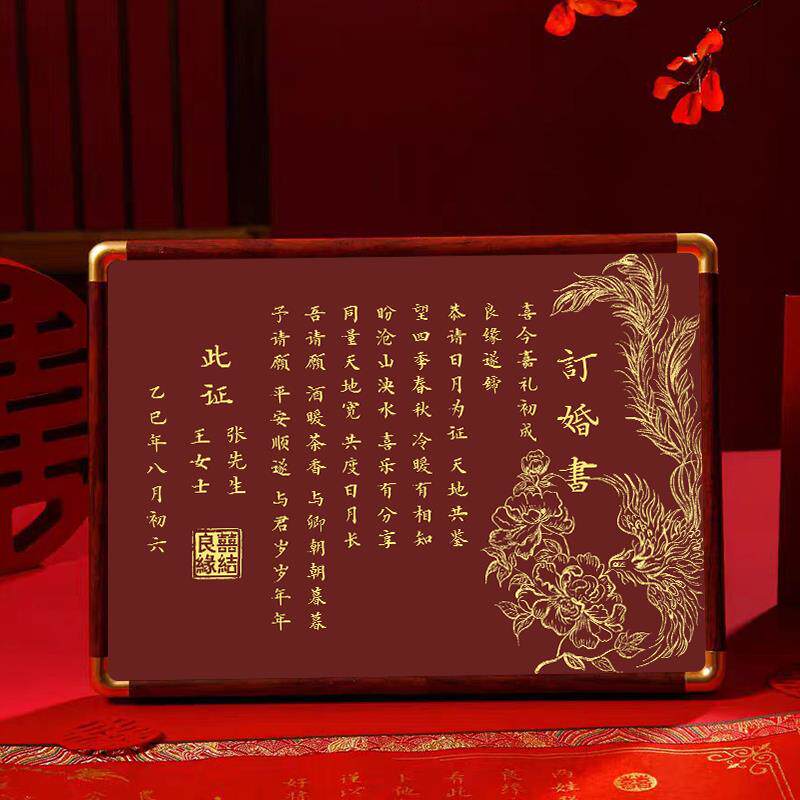 訂婚書
喜今嘉礼初成
良缘遂缔
恭请日月为证 天地共鉴
望四季春秋 冷暖有相知
盼沧山泱水 喜乐有分享
同量天地宽 共度日月长
吾请愿 酒暖茶香 与卿朝朝暮暮
予请愿 平安顺遂 与君岁岁年年
此证
张先生
王女士
囍結
良緣
乙巳年八月初六
良缘
看此
卜他
谨以
好将